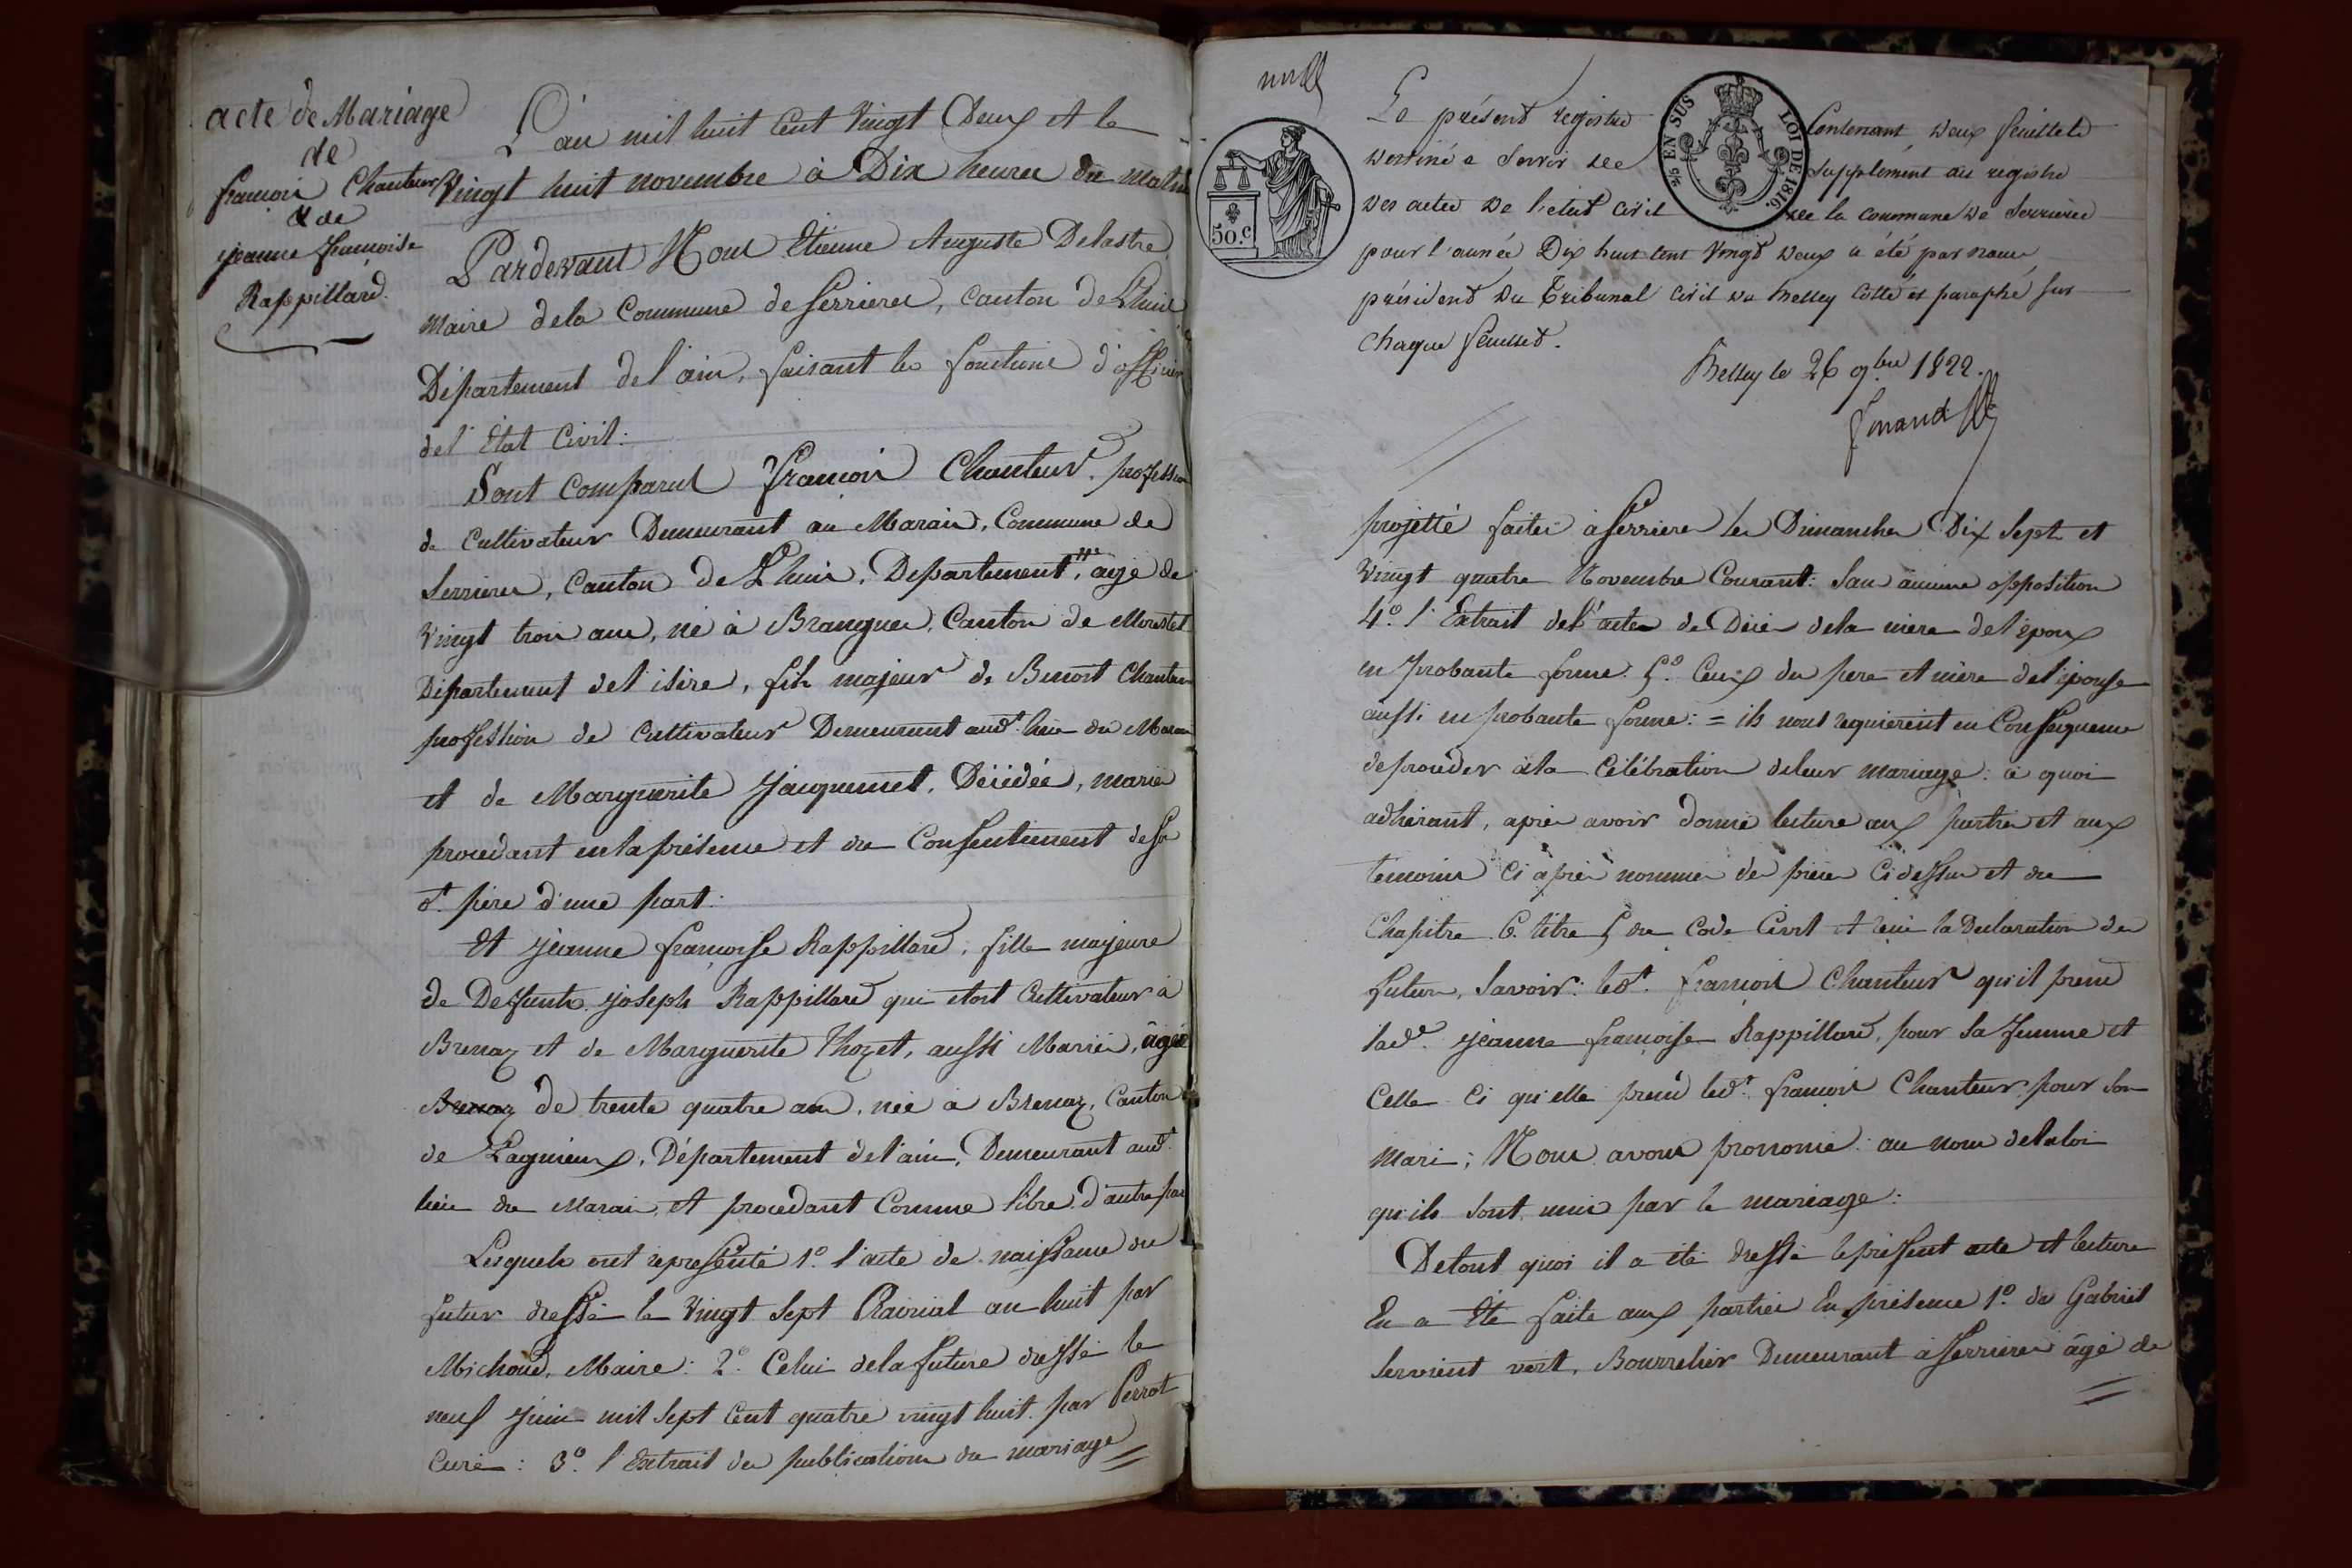 acte de Mariage
de
francois Chanteur
& de
jeanne francoise
Rappillard.
L'an mil huit Cent Vingt Deux et le
Vingt huit novembre à Dix heures du matin
Pardevant Nous Etienne Auguste Delastre
Maire dela Commune de Serrieres, canton de Lhuis
Département del'ain, faisant les fonctions d'officier
del'Etat Civil:
Sont comparus François Chanteur, profession
de Cultivateur Demeurant au Marais, Commune de
Serrieres, Canton de Lhuis, Departement, agé de
Vingt trois ans, né à Brangues, Canton de Morestel
Département del'isère, fils majeur de Benoit Chanteur
profession de Cultivateur Demeurant aud.t lieu du Marais
et de Marguerite Jacquemet, Décédée, mariés
procedant en la présence et du Consentement de son
d.t père d'une part:
Et jeanne françoise Rappillard, fille majeure
de Defunts joseph Rappillard qui etoit Cultivateur à
Brenaz et de Marguerite Thozet, aussi Mariés, âgée
Brenaz de trente quatre ans, née à Brenaz, Canton
de Lagnieux, Département del'ain, Demeurant aud.t
lieu du Marais, et procedant Comme libre d'autre part
Lesquels ont representé 1.° l'acte de naissance du
futur dressé le Vingt Sept Prairial an huit par
Michoud, Maire: 2.° Celui dela future dressé le
neuf Juin mil Sept Cent quatre vingt huit par Perrot
Curé: 3.° l'Extrait des publications du mariage
Le présent registre Contenant deux feuillets
destiné a Servir de Supplément au registre
des actes de l'etat civil de la commune de Serrieres
pour l'année Dix huit cent Vingt deux a été par nous,
président du Tribunal civil de Belley Cotté et paraphé sur
chaque feuillet.
Belley le 26 9.bre 1822.
50.C
2/5 EN SUS
LOI DE 1816.
projetté faites à Serrieres les Dimanches Dix Sept et
Vingt quatre Novembre Courant: Sans aucune opposition
4.° l'Extrait del'acte de Décès dela mère del'époux
en probante forme: 5.° Ceux du pere et mère del'épouse
aussi en probante forme: = ils nous requierent en Consequence
de proceder à la Célébration deleur mariage: à quoi
adhérant, après avoir donné lecture aux parties et aux
temoins Ci après nommés des pièces Ci dessus et du
Chapitre 6. titre 5 du Code Civil et reçu la Déclaration des
futurs, Savoir: led.t françois Chanteur qu'il prend
lad.e jeanne françoise Rappillard, pour sa femme et
Celle Ci qu'elle prend led.t françois Chanteur pour son
Mari; Nous avons prononcé: au nom delaloi
qu'ils sont unis par le mariage:
Detout quoi il a été dressé le présent acte et lecture
En a Eté faite aux parties En présence 1.° de Gabriel
Servient vert, Bourrelier Demeurant à Serrieres âgé de